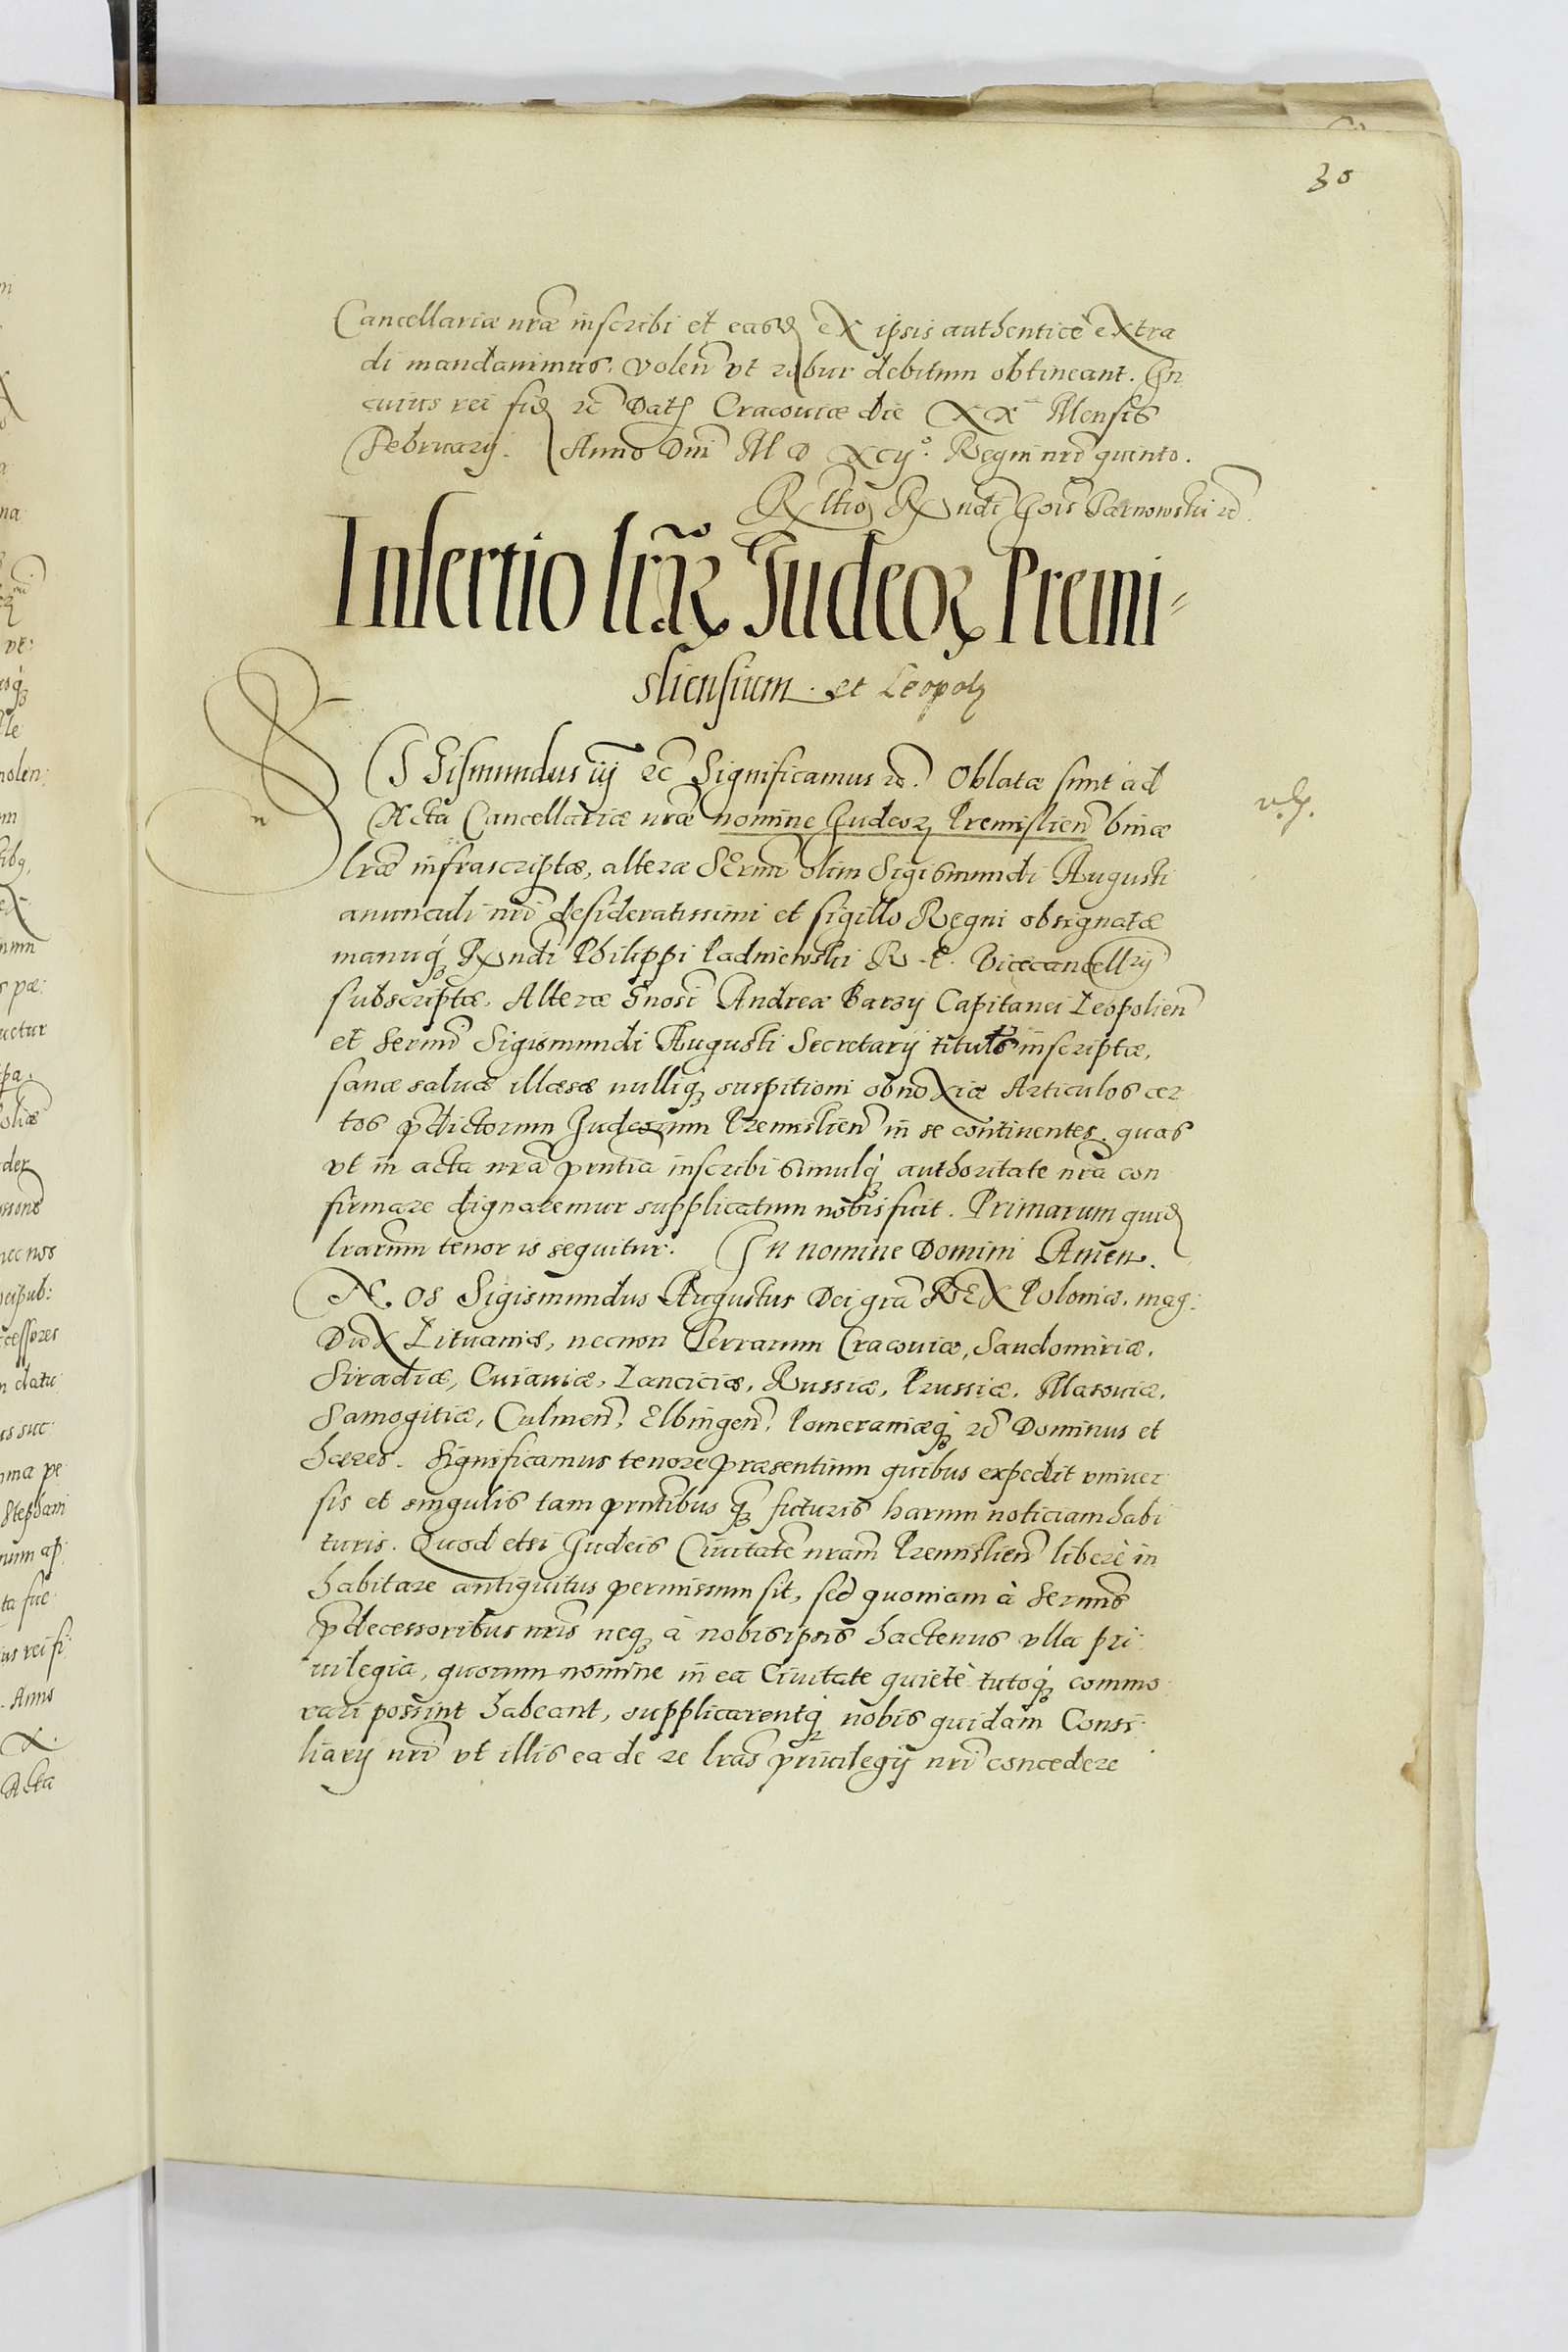 30
Cancellariæ nr̃æ inscribi et easq̃ ex ipsis authenticè extra
di mandauimus. volen̄ vt robur debitum obtineant. In
cuius rei fiđ rc̄ Datꝭ Cracouiæ die XXᵃ Mensis
February. Anno Dn̄i M D XCijº. Regni nr̄i quinto.
Rl̄tio Rx̄ndi Jois Tarnowski rc̄
Insertio lr̃aꝝ Judeoꝝ Premi=
sliensium. et Leopolꝭ
SIgismundus iij rc̄ Significamus rc̄. Oblatæ sunt ad
Acta Cancellariæ nr̃æ nomine Judeoꝝ Premislien̄ binæ
lr̃æ infrascriptæ, alteræ Sermi olim Sigismundi Augusti
auunculi nr̄i desideratissimi et sigillo Regni obsignatæ
manuqꝫ Rx̄ndi Philippi Padniewski R. P. Vicecancellrij
subscriptæ. Alteræ Gnosi Andreæ Barzij Capitanei Leopolien̄
et sermi Sigismundi Augusti Secretarij titulo inscriptæ,
sanæ saluæ illæsæ nulliqꝫ suspitioni obnoxiæ Articulos cer
tos p̄dictorum Judeorum Premislien̄ in se continentes. quas
vt in acta nr̃a pn̄tia inscribi simulqꝫ authoritate nr̃a con
firmare dignaremur supplicatum nobis fuit. Primarum quiđ
lr̃arum tenor is sequitur. In nomine Domini Amen.
Nos Sigismundus Augustus Dei gr̃a REX Poloniæ, mag:
Dux Lituaniæ, necnon Terrarum Cracouiæ, Sandomiriæ.
Siradiæ, Cuiauiæ, Lanciciæ, Russiæ, Prussiæ, Masouiæ,
Samogitiæ, Culmen̄, Elbingen̄, Pomeraniæqꝫ rc̄ Dominus et
hæres. Significamus tenore præsentium quibus expedit vniuer
sis et singulis tam pn̄tibus qꝫ futuris harum noticiam habi
turis. Quod etsi Judeis Ciuitatē nram̄ Premislien̄ liberè in
habitare antiquitus permissum sit, sed quoniam à sermis
p̄decessoribus nr̄is neqꝫ à nobis ipsis hactenus vlla pri
uilegia, quorum nomine in ea Ciuitate quietè tutoqꝫ commo
rari possint habeant, supplicarentqꝫ nobis quidam Consi
liarij nr̄i vt illis ea de re lr̃as priuilegij nr̄i concedere